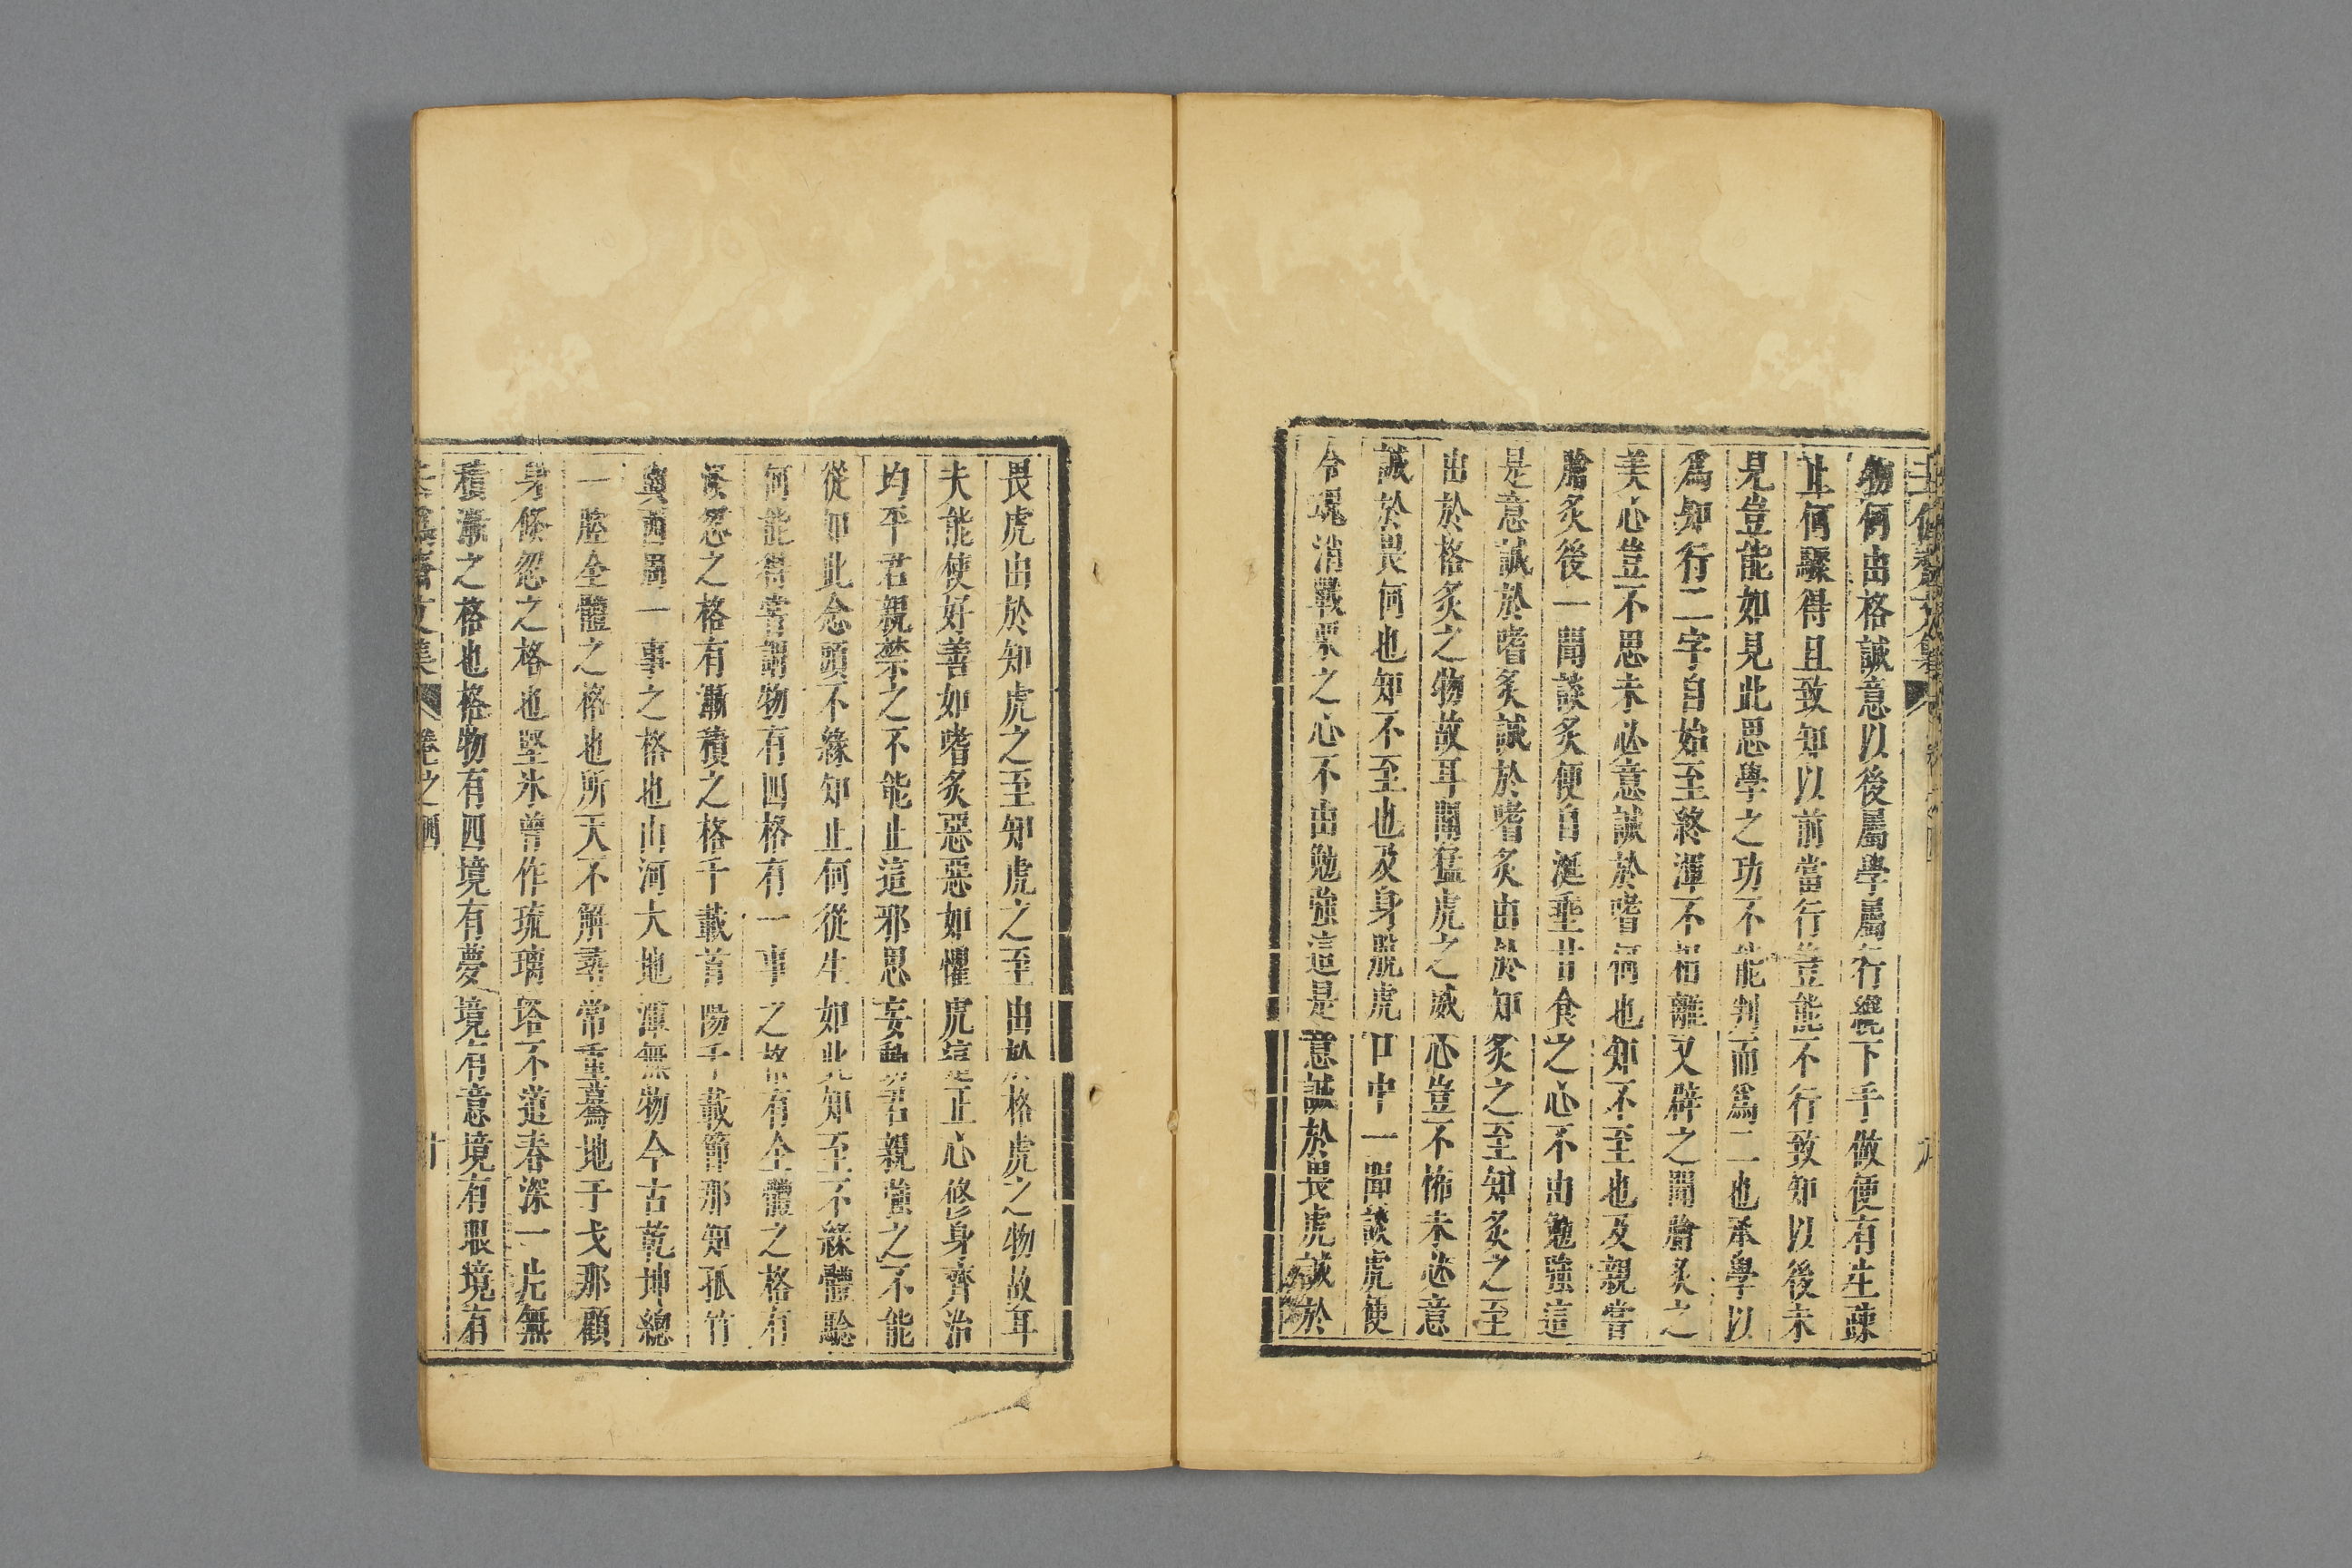 物何由格誠意以後屬學屬行纔下手做便有生疎
止何驟得且致知以前當行豈能不行致知以後未
見豈能如見此思學之功不能判而爲二也承學以
爲知行二字自始至終渾不相離又辟之聞膾炙之
美心豈不思未必意誠於嗜何也知不至也及親嘗
膾炙後一聞談炙便自涎垂昔食之心不由勉強這
是意誠於嗜炙誠於嗜炙由於知炙之至知炙之至
由於格炙之物故耳聞猛虎之威心豈不怖未必意
誠於畏何也知不至也及身脫虎口中一聞談虎便
令魂消戰栗之心不由勉強這是意誠於畏虎誠於
畏虎由於知虎之至知虎之至由於格虎之物故耳
夫能使好善如嗜炙惡惡如懼虎這是正心修身齊治
均平君親禁之不能止這邪思妄動君親強之不能
從如此念頭不緣知止何從生如此知至不緣體驗
何能得嘗謂物有四格有一事之格有全體之格有
倏忽之格有漸積之格千載首陽千載節那知孤竹
與西周一事之格也山河大地渾無物今古乾坤總
一腔全體之格也所天不解尋常重驀地于戈那顧
身倐忽之格也堅氷曾作琉璃塔不道春深一片無
積漸之格也格物有四境有夢境有意境有眼境有
文集 卷之四